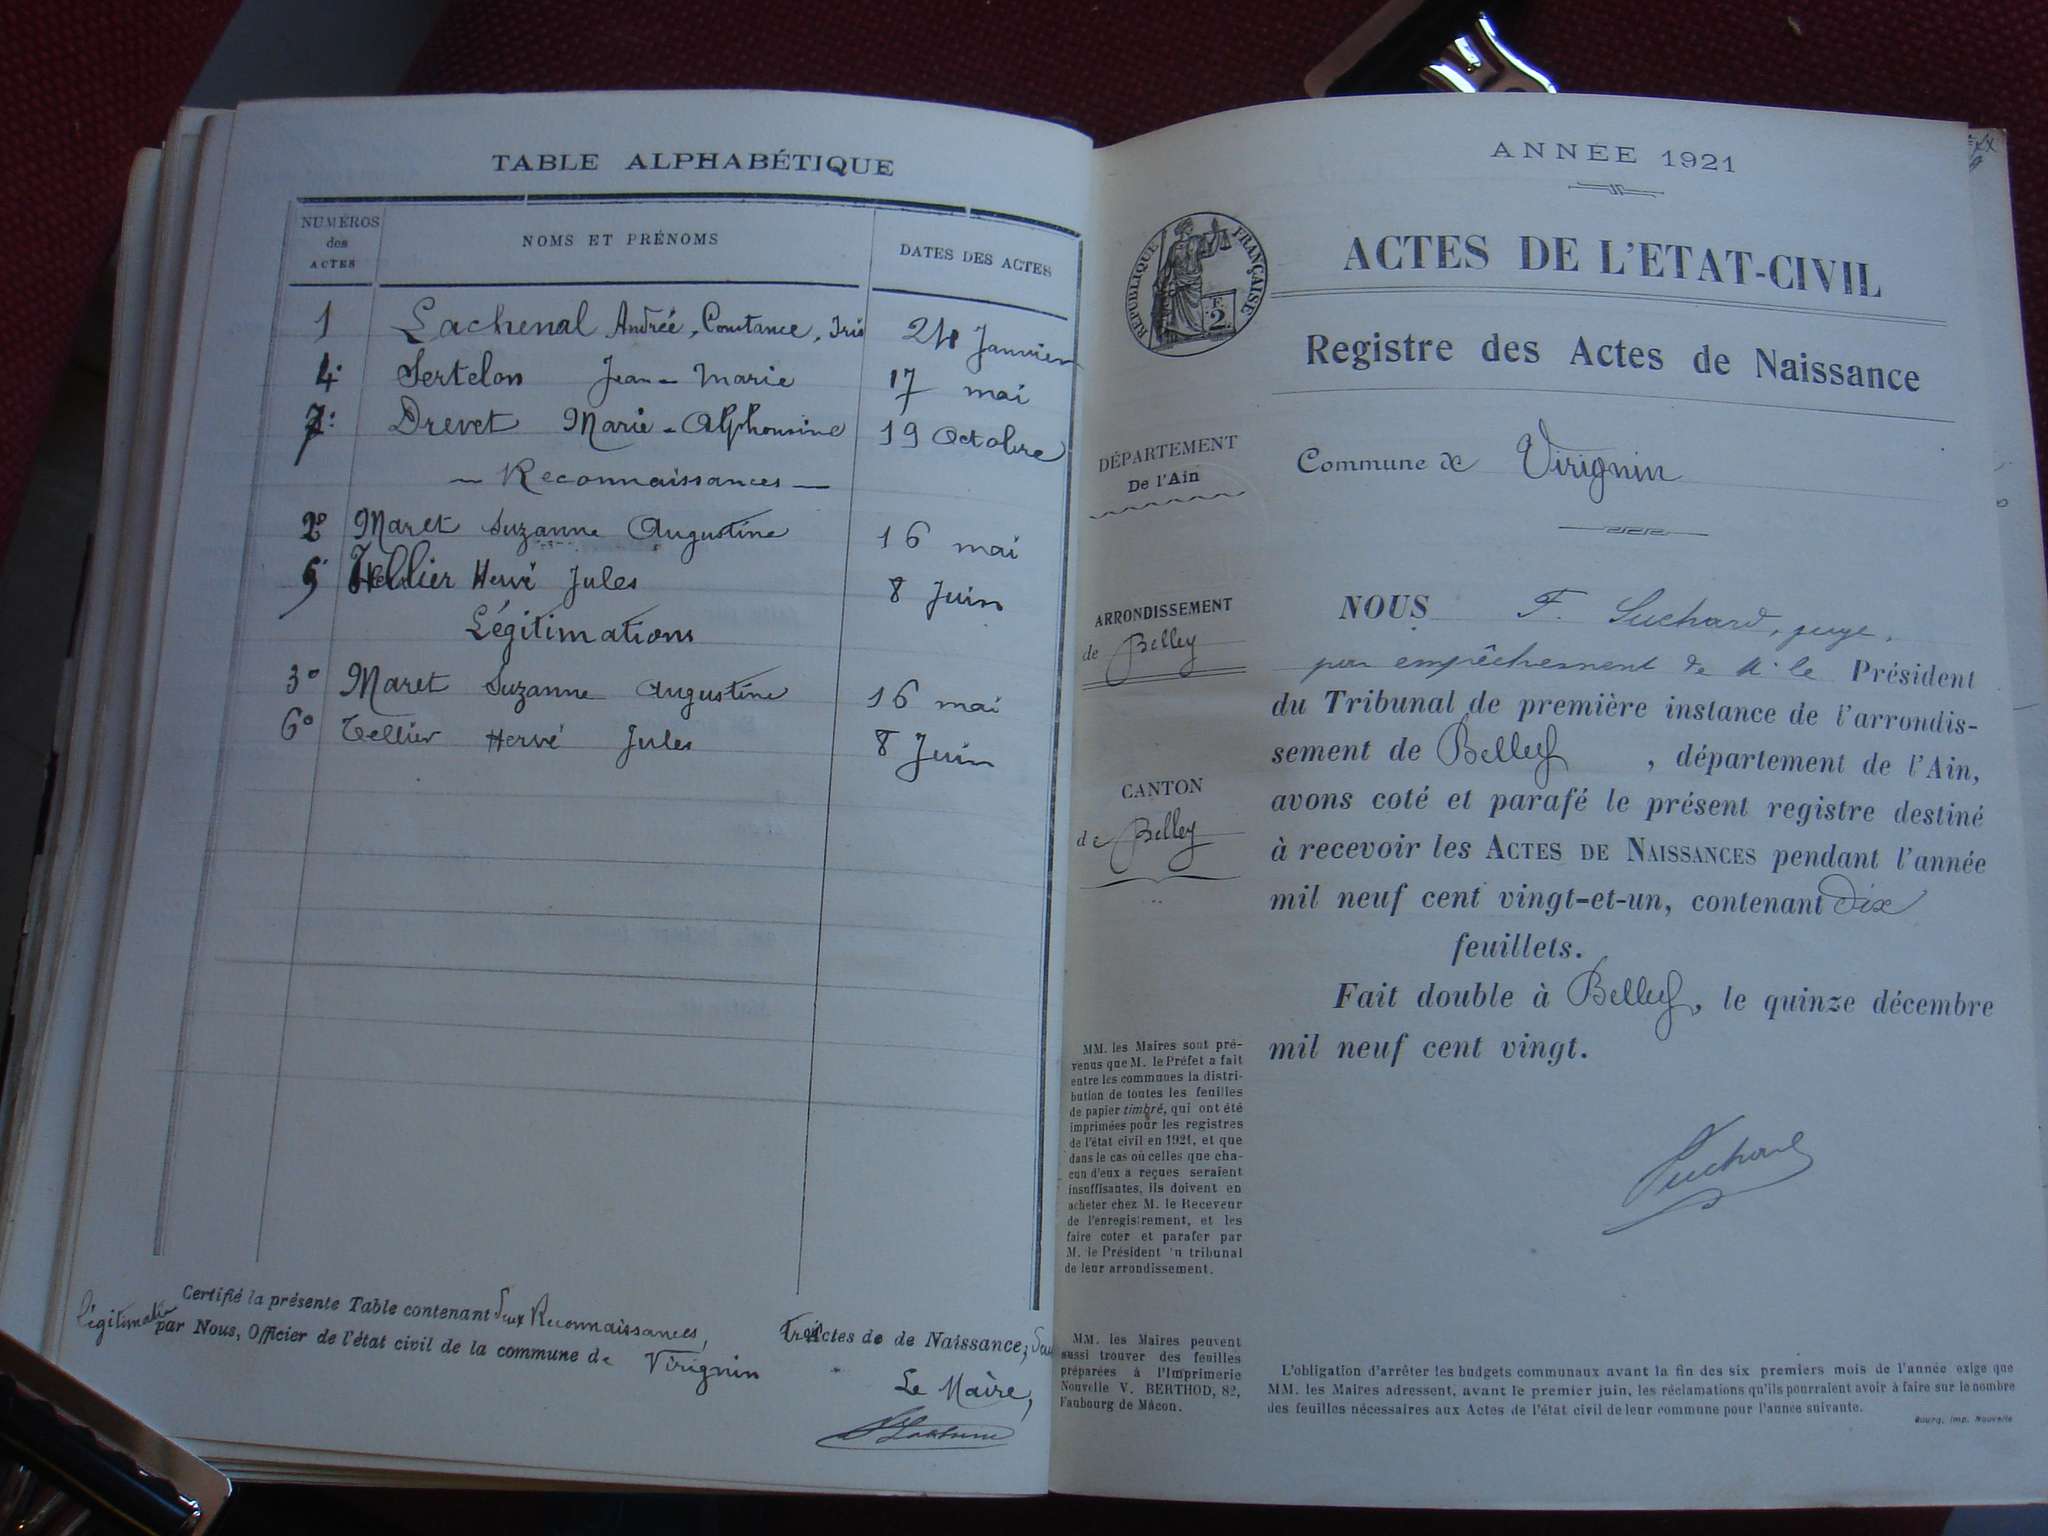 TABLE ALPHABÉTIQUE
NUMÉROS des ACTES
NOMS ET PRÉNOMS
DATES DES ACTES
1 Lachenal Andrée, Constance, Iris 24 Janvier
4: Sertelon Jean-Marie 17 mai
7: Drevet Marie-Alphonsine 19 Octobre
- Reconnaissances -
2º Maret Suzanne Augustine 16 mai
5: Tellier Hervé Jules 8 Juin
Légitimations
3º Maret Suzanne Augustine 16 mai
6º Tellier Hervé Jules 8 Juin
Certifié la présente Table contenant deux Reconnaissances, trois Actes de de Naissance; deux
légitimation par Nous, Officier de l'état civil de la commune de Virignin
Le Maire,
ANNÉE 1921
RÉPUBLIQUE FRANÇAISE
F.
2
ACTES DE L'ETAT-CIVIL
Registre des Actes de Naissance
DÉPARTEMENT
De l'Ain
Commune de Virignin
ARRONDISSEMENT
de Belley
CANTON
de Belley
NOUS F. Suchard, juge,
par empêchement de M. le Président
du Tribunal de première instance de l'arrondis-
sement de Belley, département de l'Ain,
avons coté et parafé le présent registre destiné
à recevoir les ACTES DE NAISSANCES pendant l'année
mil neuf cent vingt-et-un, contenant Dix
feuillets.
Fait double à Belley, le quinze décembre
mil neuf cent vingt.
Suchard
MM. les Maires sont pré-
venus que M. le Préfet a fait
entre les communes la distri-
bution de toutes les feuilles
de papier timbré, qui ont été
imprimées pour les registres
de l'état civil en 1921, et que
dans le cas où celles que cha-
cun d'eux a reçues seraient
insuffisantes, ils doivent en
acheter chez M. le Receveur
de l'enregistrement, et les
faire coter et parafer par
M. le Président 'u tribunal
de leur arrondissement.
MM. les Maires peuvent
aussi trouver des feuilles
préparées à l'Imprimerie
Nouvelle V. BERTHOD, 82,
Faubourg de Mâcon.
L'obligation d'arrêter les budgets communaux avant la fin des six premiers mois de l'année exige que
MM. les Maires adressent, avant le premier juin, les réclamations qu'ils pourraient avoir à faire sur le nombre
des feuilles nécessaires aux Actes de l'état civil de leur commune pour l'année suivante.
Bourg, Imp. Nouvelle